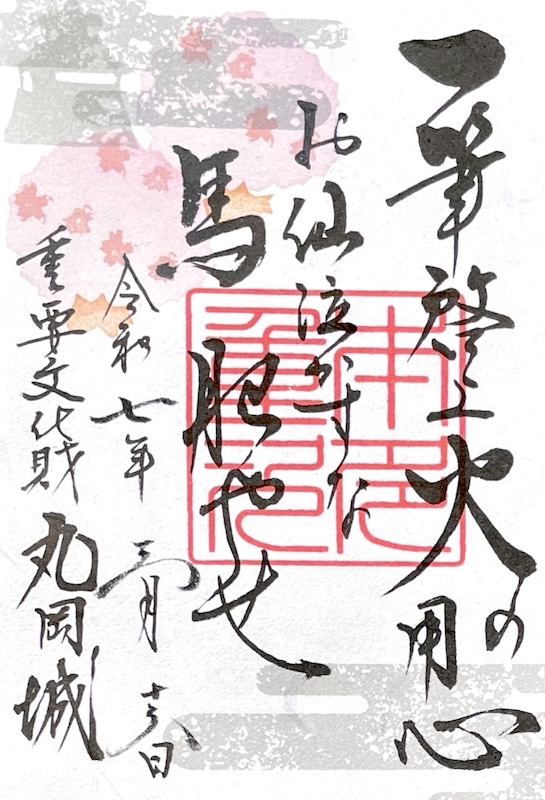 一筆啓上火の用心
お仙泣かすな
馬肥やせ
令和七年三月 日
重要文化財 丸岡城